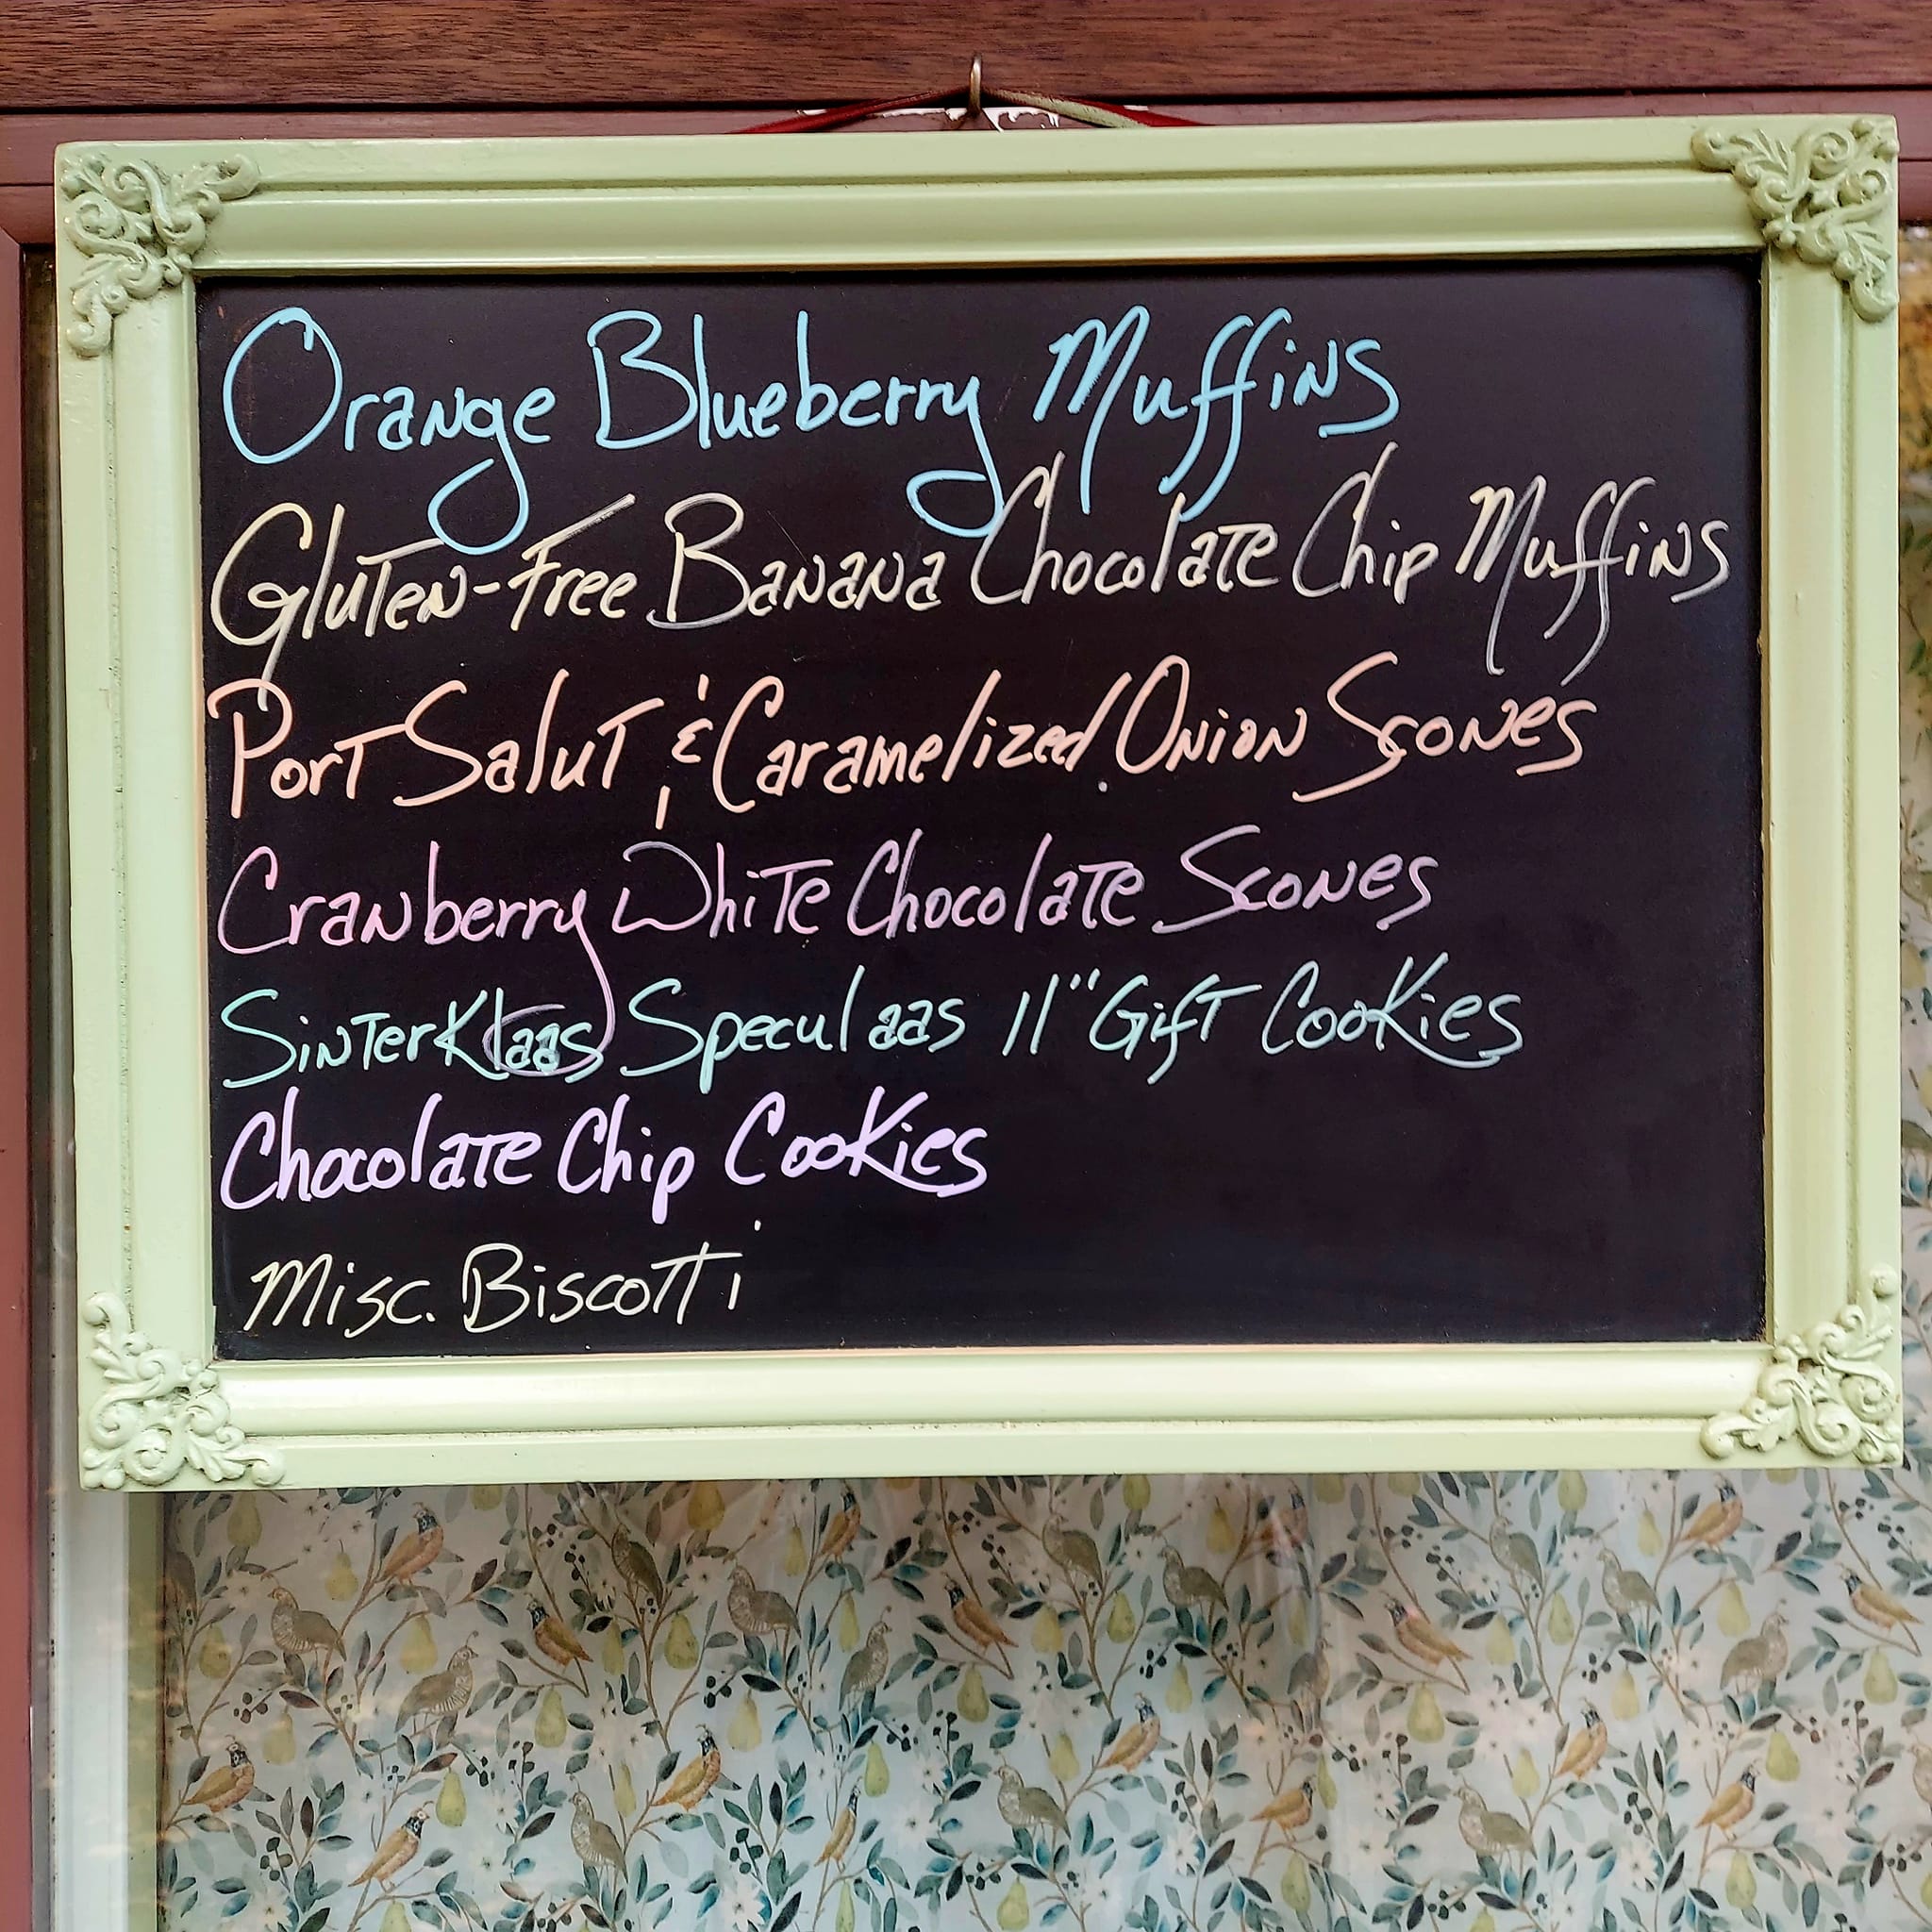 Orange Blueberry Muffins
Gluten-Free Banana Chocolate Chip Muffins
Port Salut & Caramelized Onion Scones
Cranberry White Chocolate Scones
SinterKlaas Speculaas 11" Gift Cookies
Chocolate Chip Cookies
Misc. Biscotti